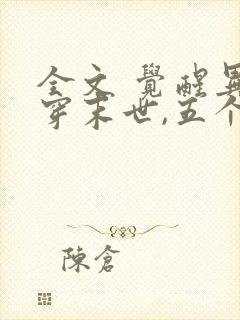 全文 覺醒異
穿末世,五个
陳倉